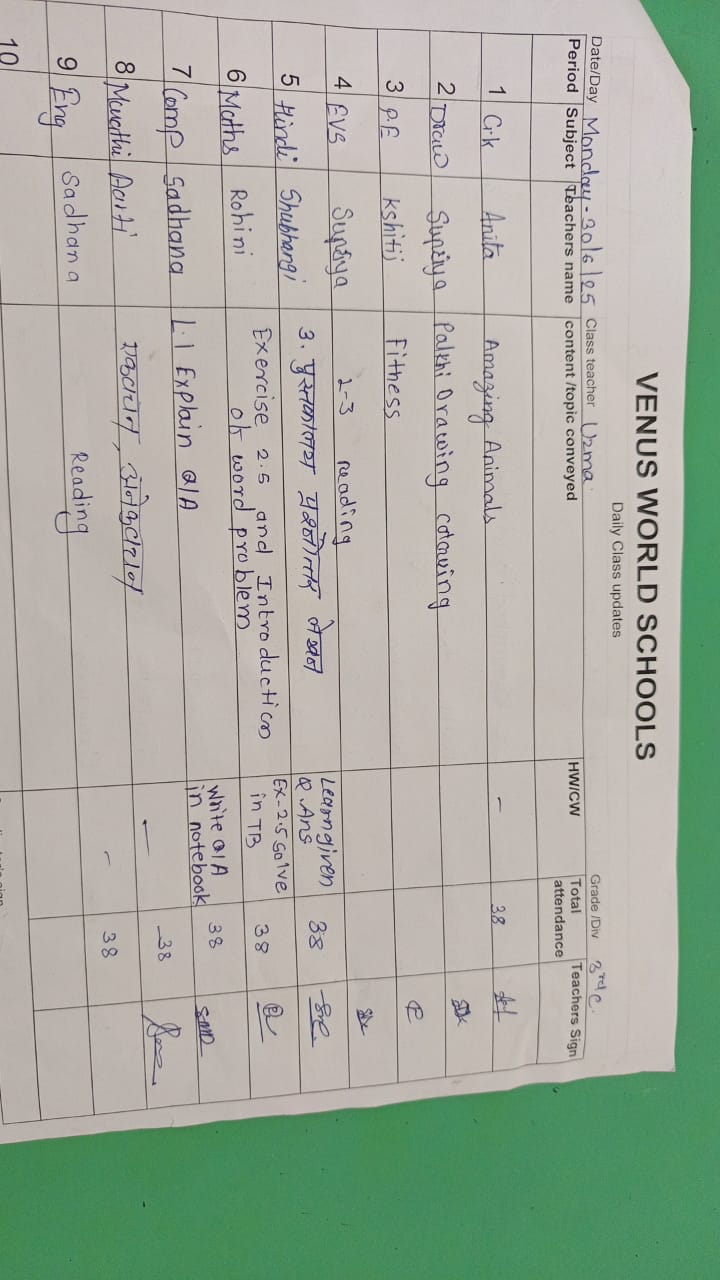 VENUS WORLD SCHOOLS
Daily Class updates
Date/Day Monday - 30/6/25 Class teacher Uzma Grade /Div 3rd C.
Period Subject Teachers name content /topic conveyed HW/CW Total attendance Teachers Sign
1 G.k Anita Amazing Animals - 38
2 Draw Supriya Palkhi Drawing colouring
3 P.E Kshitij Fitness
4 EVS Supriya 2-3 reading
5 Hindi Shubhangi 3. पुस्तकालय प्रश्नोत्तर लेखन Learn given Q. Ans 38
6 Maths Rohini Exercise 2.5 and Introduction of word problem Ex-2.5 Solve in TB 38
7 Comp Sadhana L.1 Explain Q/A Write Q/A in notebook 38
8 Marathi Aarti एकवचन, अनेकवचन - 38
9 Eng Sadhana Reading - 38
10